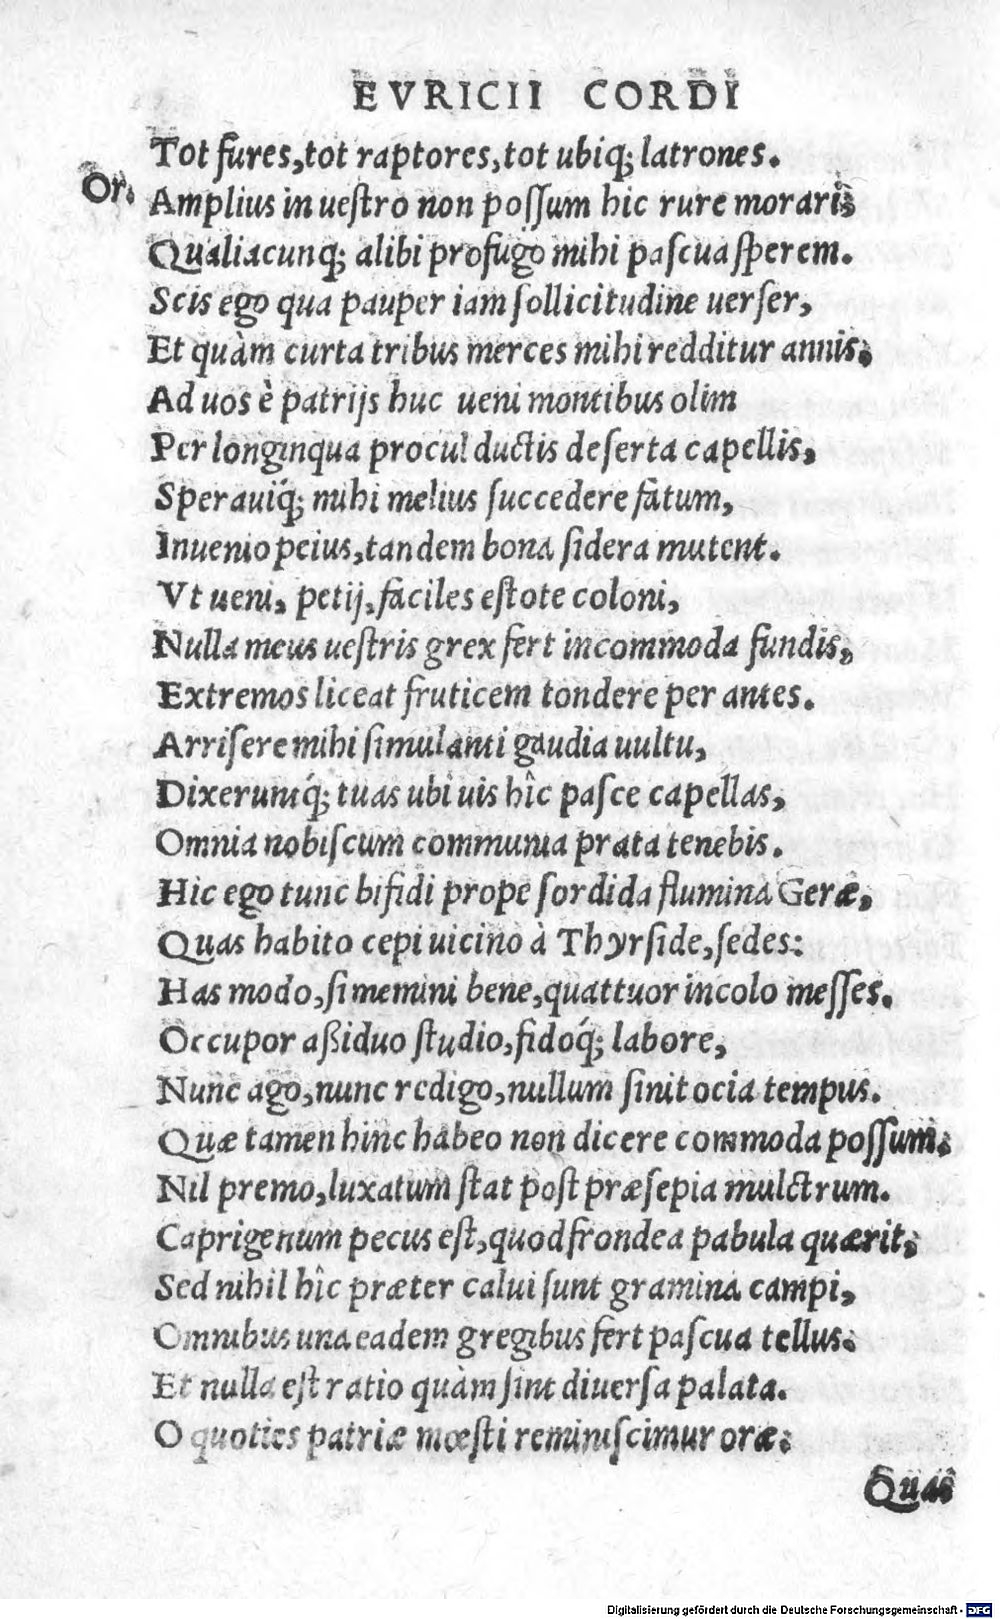 EVRICII CORDI
Tot fures, tot raptores, tot ubiq; latrones.
Or. Amplius in uestro non possum hic rure morari,
Qualiacunq; alibi profugo mihi pascua sperem.
Scis ego qua pauper iam sollicitudine uerser,
Et quàm curta tribus merces mihi redditur annis,
Ad uos è patrijs huc ueni montibus olim
Per longinqua procul ductis deserta capellis,
Sperauiq́; mihi melius succedere fatum,
Inuenio peius, tandem bona sidera mutent.
Vt ueni, petij, faciles estote coloni,
Nulla meus uestris grex fert incommoda fundis,
Extremos liceat fruticem tondere per antes.
Arrisere mihi simulanti gaudia uultu,
Dixeruntq́; tuas ubi uis hîc pasce capellas,
Omnia nobiscum communia prata tenebis.
Hic ego tunc bifidi prope sordida flumina Geræ,
Quas habito cepi uicino à Thyrside, sedes:
Has modo, si memini bene, quattuor incolo messes.
Occupor aßiduo studio, fidoq́; labore,
Nunc ago, nunc redigo, nullum sinit ocia tempus.
Quæ tamen hinc habeo non dicere commoda possum,
Nil premo, luxatum stat post præsepia mulctrum.
Caprigenum pecus est, quod frondea pabula quærit,
Sed nihil hîc præter calui sunt gramina campi,
Omnibus una eadem gregibus fert pascua tellus,
Et nulla est ratio quàm sint diuersa palata.
O quoties patriæ mœsti reminiscimur oræ,
Quas
Digitalisierung gefördert durch die Deutsche Forschungsgemeinschaft - DFG